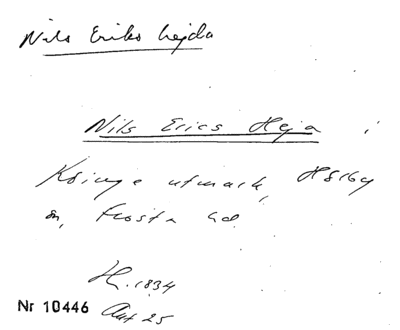 Nils Eriks hejda
Nils Erics Heja i
Köinge utmark, Hörby
sn, Frosta hd.
H. 1834
Akt 25
Nr 10446